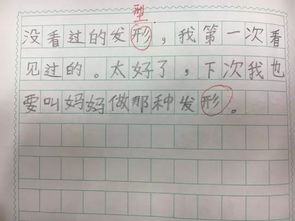 型
没看过的发形，我第一次看
见过的。太好了，下次我也
要叫妈妈做那种发形。